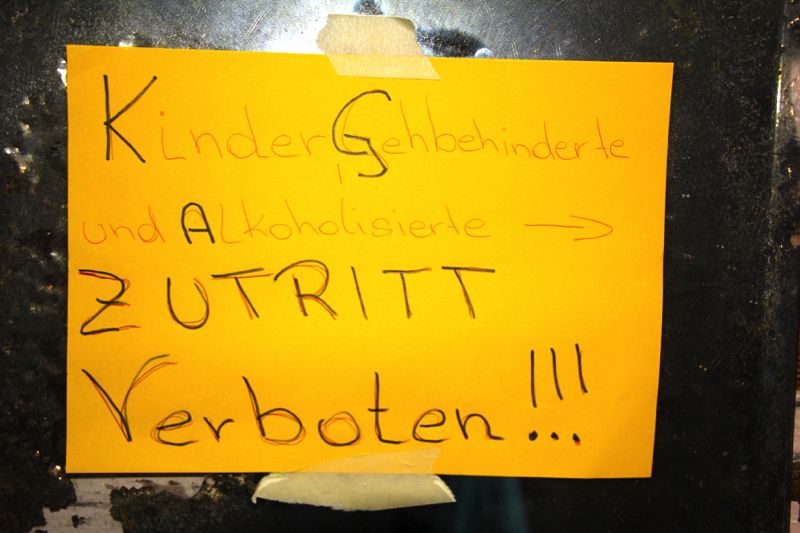 Kinder, Gehbehinderte
und Alkoholisierte →
ZUTRITT
Verboten!!!